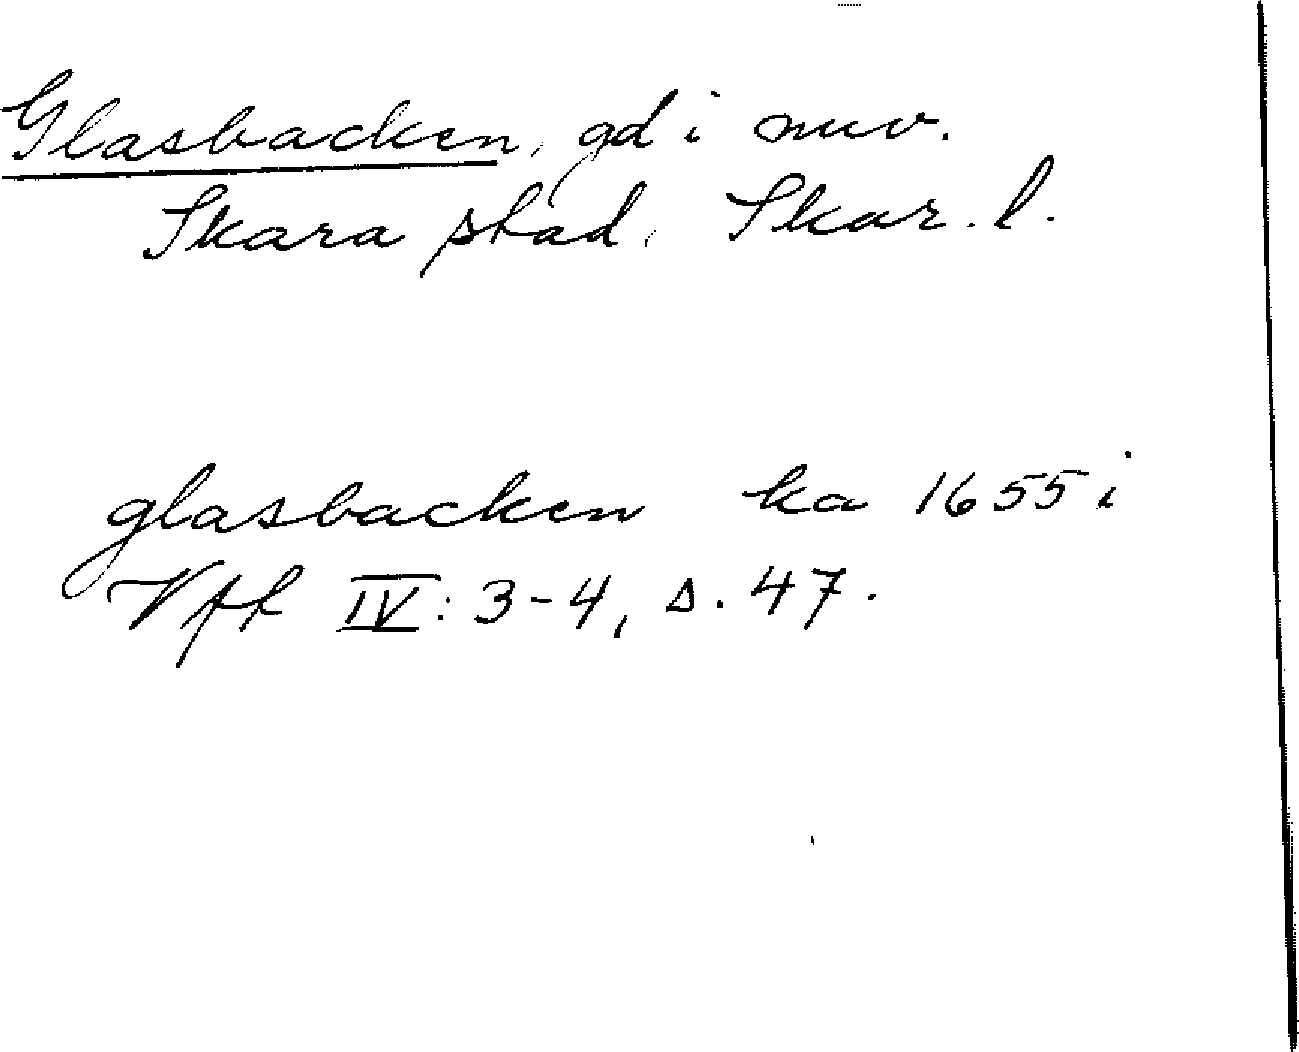 Glasbacken, gd i nuv.
Skara stad, Skar. l.
glasbacken ka 1655 i
Vfk IV: 3-4, s. 47.